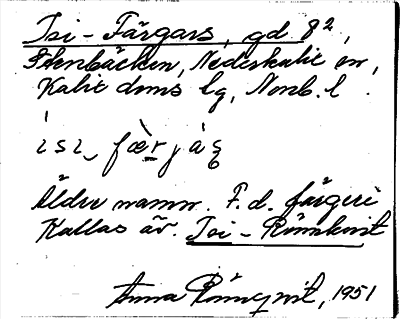 Isi-Färgars, gd 8²,
Stenbäcken, Nederkalix sn,
Kalix doms lg, Norrb. l.
Äldre namn. F. d. färgeri
Kallas äv. Isi-Rönnkvist
Anna Rönnqvist, 1951